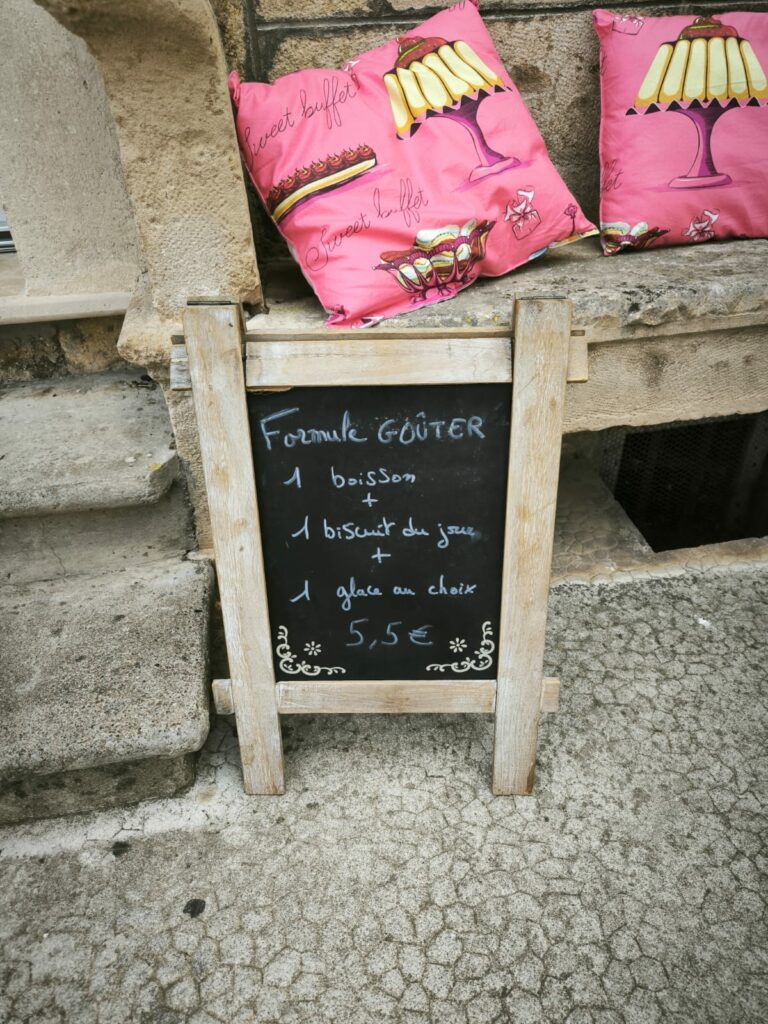 Sweet buffet
Sweet buffet
ffet
Formule GOÛTER
1 boisson
+
1 biscuit du jour
+
1 glace au choix
5,5€